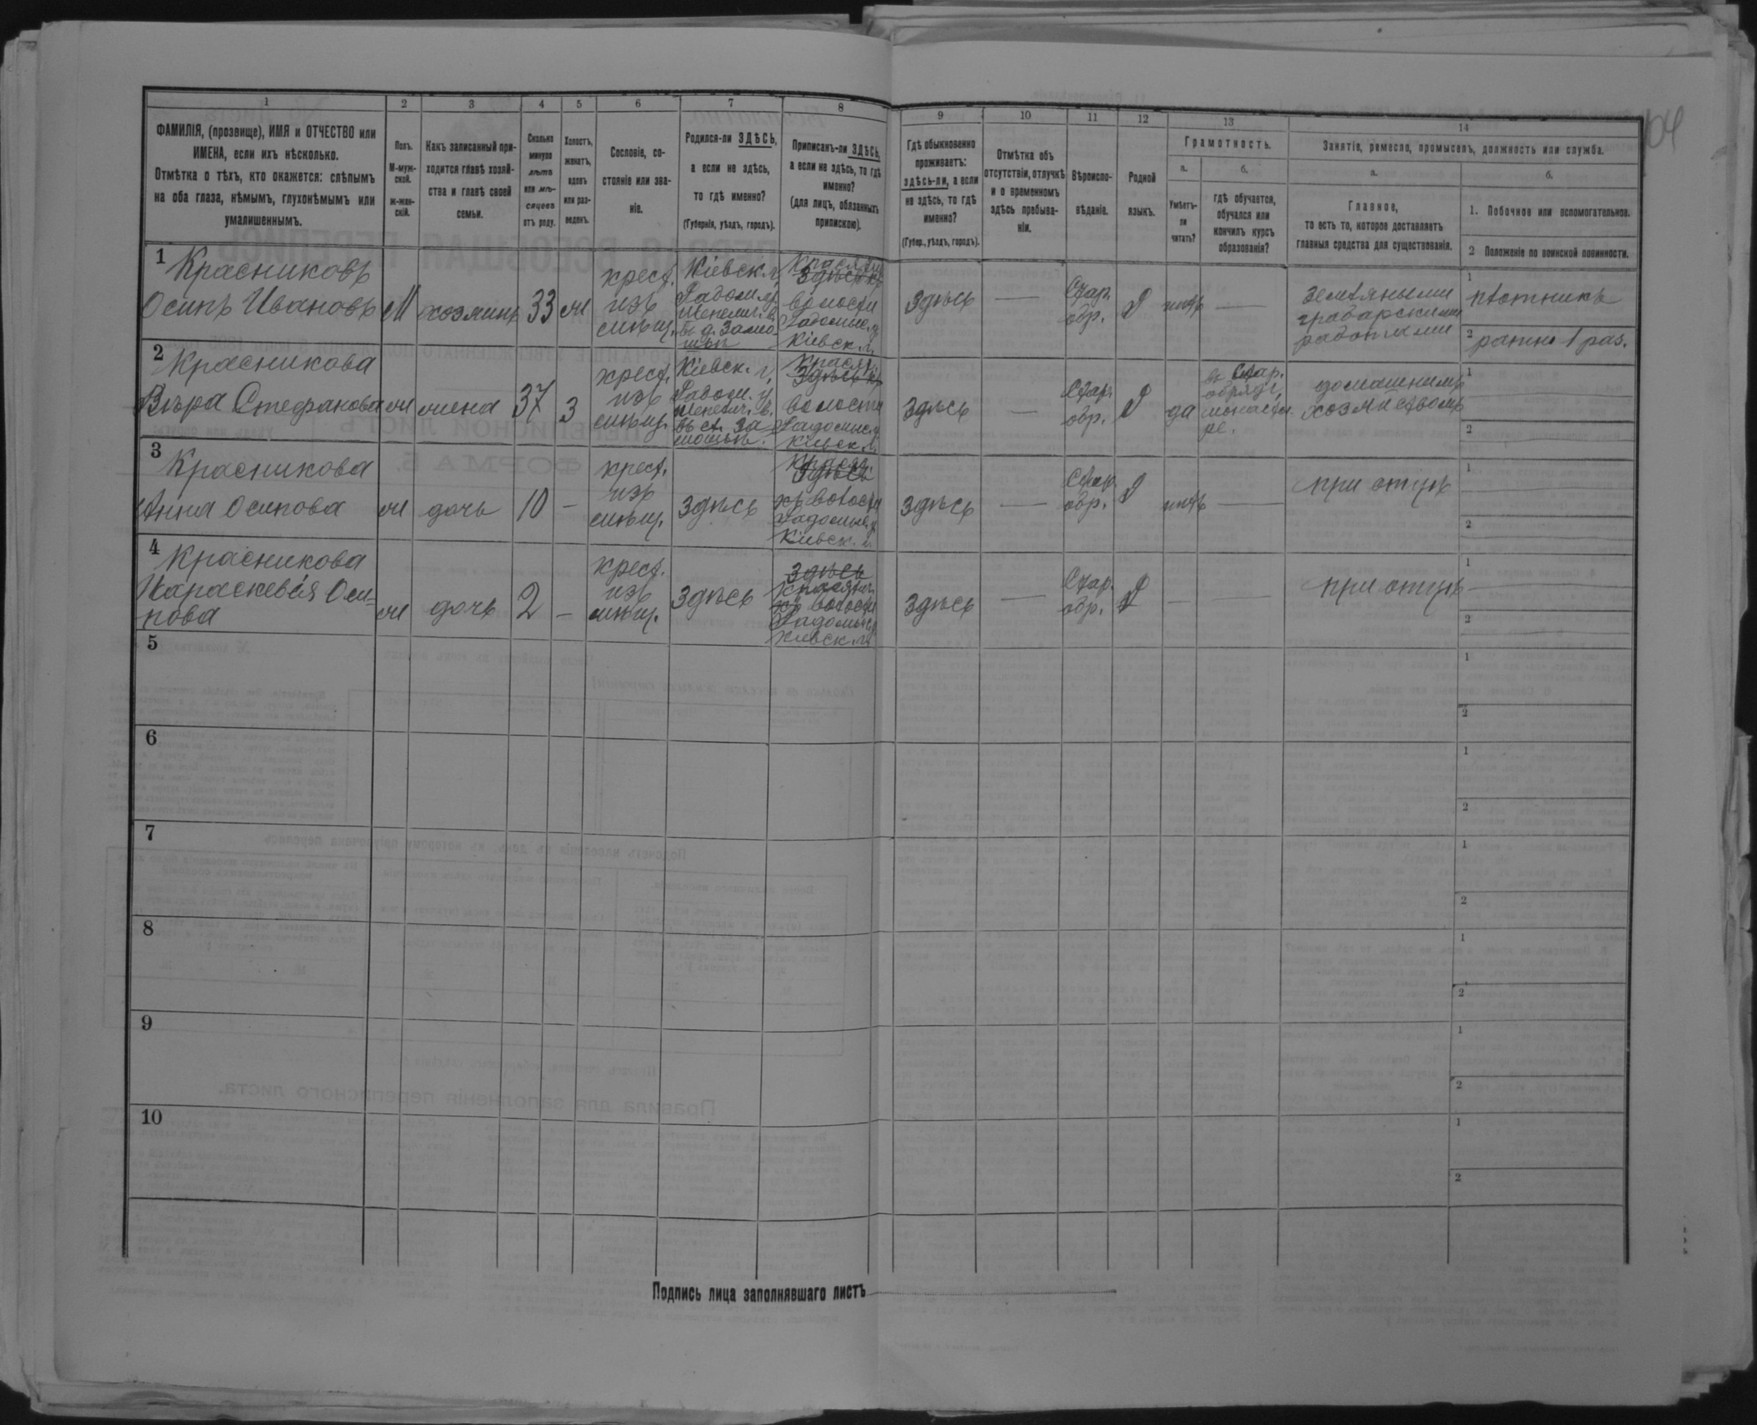 1 2 3 4 5 6 7 8 9 10 11 12 13 14
ФАМИЛІЯ, (прозвище), ИМЯ и ОТЧЕСТВО или
ИМЕНА, если ихъ нѣсколько.
Отмѣтка о тѣхъ, кто окажется: слѣпымъ
на оба глаза, нѣмымъ, глухонѣмымъ или
умалишеннымъ.
Полъ.
М-муж-
ской.
ж-жен-
скій.
Какъ записанный при-
ходится главѣ хозяй-
ства и главѣ своей
семьи.
Сколько
минуло
лѣтъ
или мѣ-
сяцевъ
отъ роду.
Холостъ,
женатъ,
вдовъ
или раз-
веденъ.
Сословіе, со-
стояніе или зва-
ніе.
Родился-ли ЗДѢСЬ,
а если не здѣсь,
то гдѣ именно?
(Губернія, уѣздъ, городъ).
Приписанъ-ли ЗДѢСЬ,
а если не здѣсь, то гдѣ
именно?
(для лицъ, обязанныхъ
припискою).
Гдѣ обыкновенно
проживаетъ:
здѣсь-ли, а если
не здѣсь, то гдѣ
именно?
(Губер., уѣздъ, городъ).
Отмѣтка объ
отсутствіи, отлучкѣ
и о временномъ
здѣсь пребыва-
ніи.
Вѣроиспо-
вѣданіе.
Родной
языкъ.
Грамотность.
а.
Умѣетъ-
ли
читать?
б.
гдѣ обучается,
обучался или
кончилъ курсъ
образованія?
Занятіе, ремесло, промыселъ, должность или служба.
а.
Главное,
то есть то, которое доставляетъ
главныя средства для существованія.
б.
1. Побочное или вспомогательное.
2 Положеніе по воинской повинности.
1
Красниковъ
Осипъ Ивановъ
М
хозяинъ
33
ж
крест.
изъ
мѣщ.
Кіевск. г.,
Радомы. у.
въ д. Замо
шьи
волости
Радомыс. у.
Кіевск. г.
Здѣсь
—
Стар.
обр.
нѣтъ
—
земляными
грабарскими
работами
1
плотникъ
2
ратник 1 раз.
2
Красникова
Вѣра Стефанова
ж
жена
37
З
крест.
изъ
мѣщ.
Кіевск. г,
Радом. у,
мощьи.
волости
Радомыс. у.
Кіевск. г.
Здѣсь
—
Стар.
обр.
да
въ Стар.
обрядч,
монасты
рѣ.
домашнимъ
хозяйствомъ
1
2
3
Красникова
Анна Осипова
ж
дочь
10
—
крест.
изъ
мѣщ.
Здѣсь
Здѣсь
волости
Радомыс. у.
Кіевск. г.
Здѣсь
—
Стар.
обр.
нѣтъ
—
при отцѣ
1
2
4
Красникова
Параскевія Оси-
пова
ж
дочь
2
—
крест.
изъ
мѣщ.
Здѣсь
Здѣсь
волости
Радомыс. у.
Кіевск. г.
Здѣсь
—
Стар.
обр.
—
—
при отцѣ
1
2
5
1
2
6
1
2
7
1
2
8
1
2
9
1
2
10
1
2
Подпись лица заполнявшаго листъ